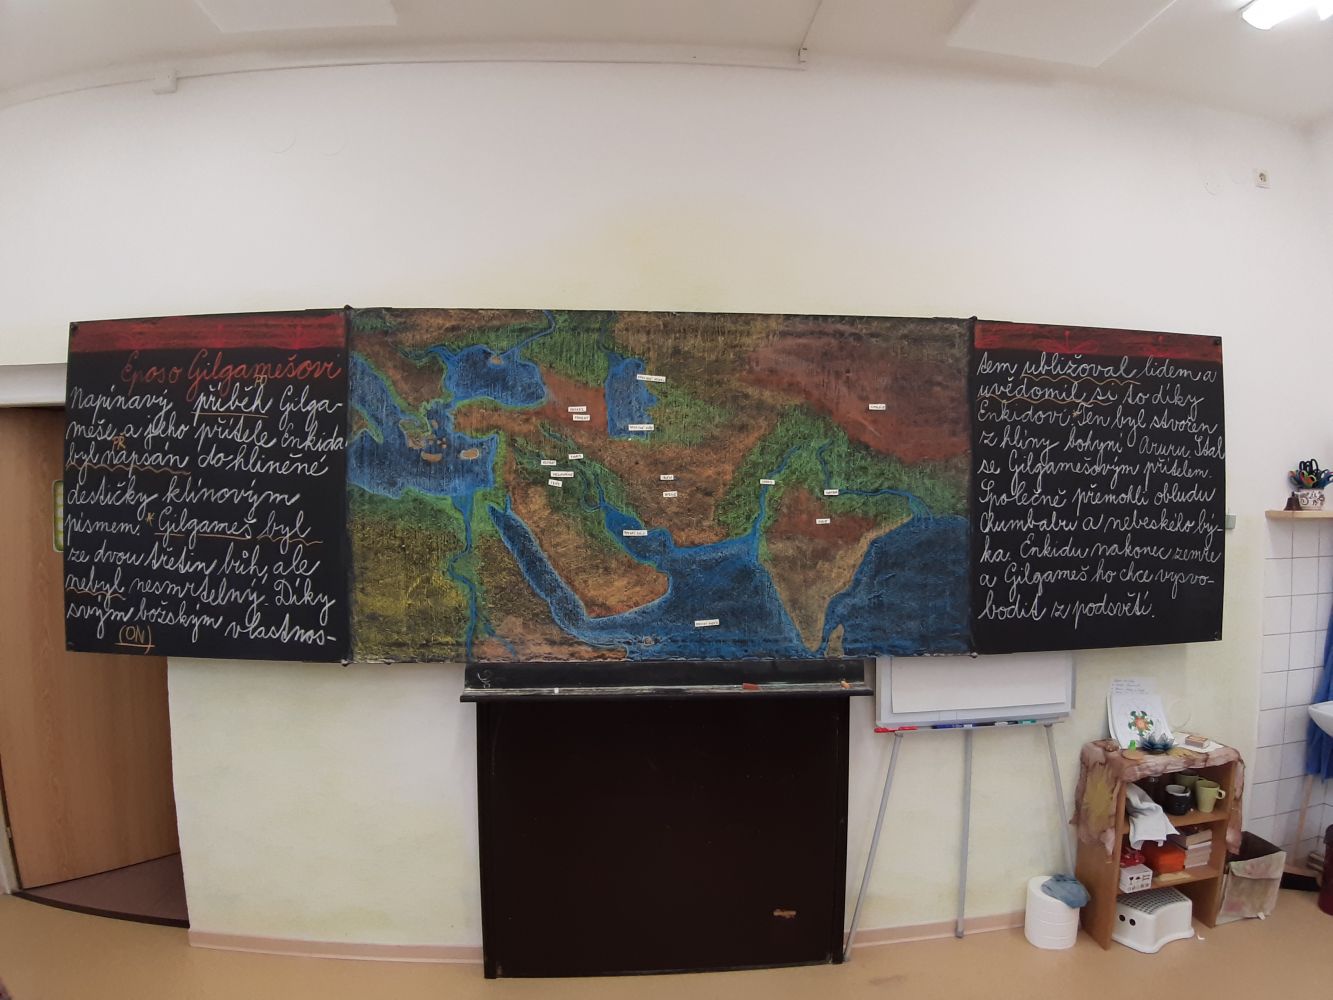 Epos o Gilgamešovi
Napínavý příběh Gilga-
meše a jeho přítele Enkida
PŘ
byl napsán do hliněné
destičky klínovým
písmem. * Gilgameš byl
ze dvou třetin bůh, ale
nebyl nesmrtelný. Díky
svým božským vlastnos-
(ON)
tem ubližoval lidem a
uvědomil si to díky
Enkidovi. * Ten byl stvořen
z hlíny bohyní Aruru. Stal
se Gilgamešovým přítelem.
Společně přemohli obludu
Chumbabu a nebeského bý-
ka. Enkidu nakonec zemře
a Gilgameš ho chce vysvo-
bodit z podsvětí.